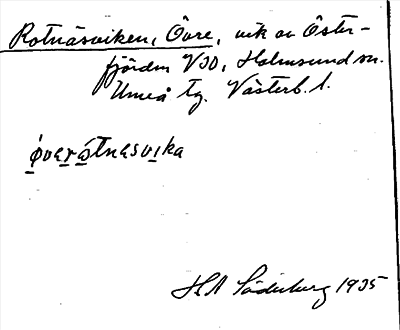 Rotnäsviken, Övre, vik av Öster-
fjärden VSO, Holmsund sn.
Umeå tg. Västerb. l.
øvərátnəsvika
H.A Söderberg 1935